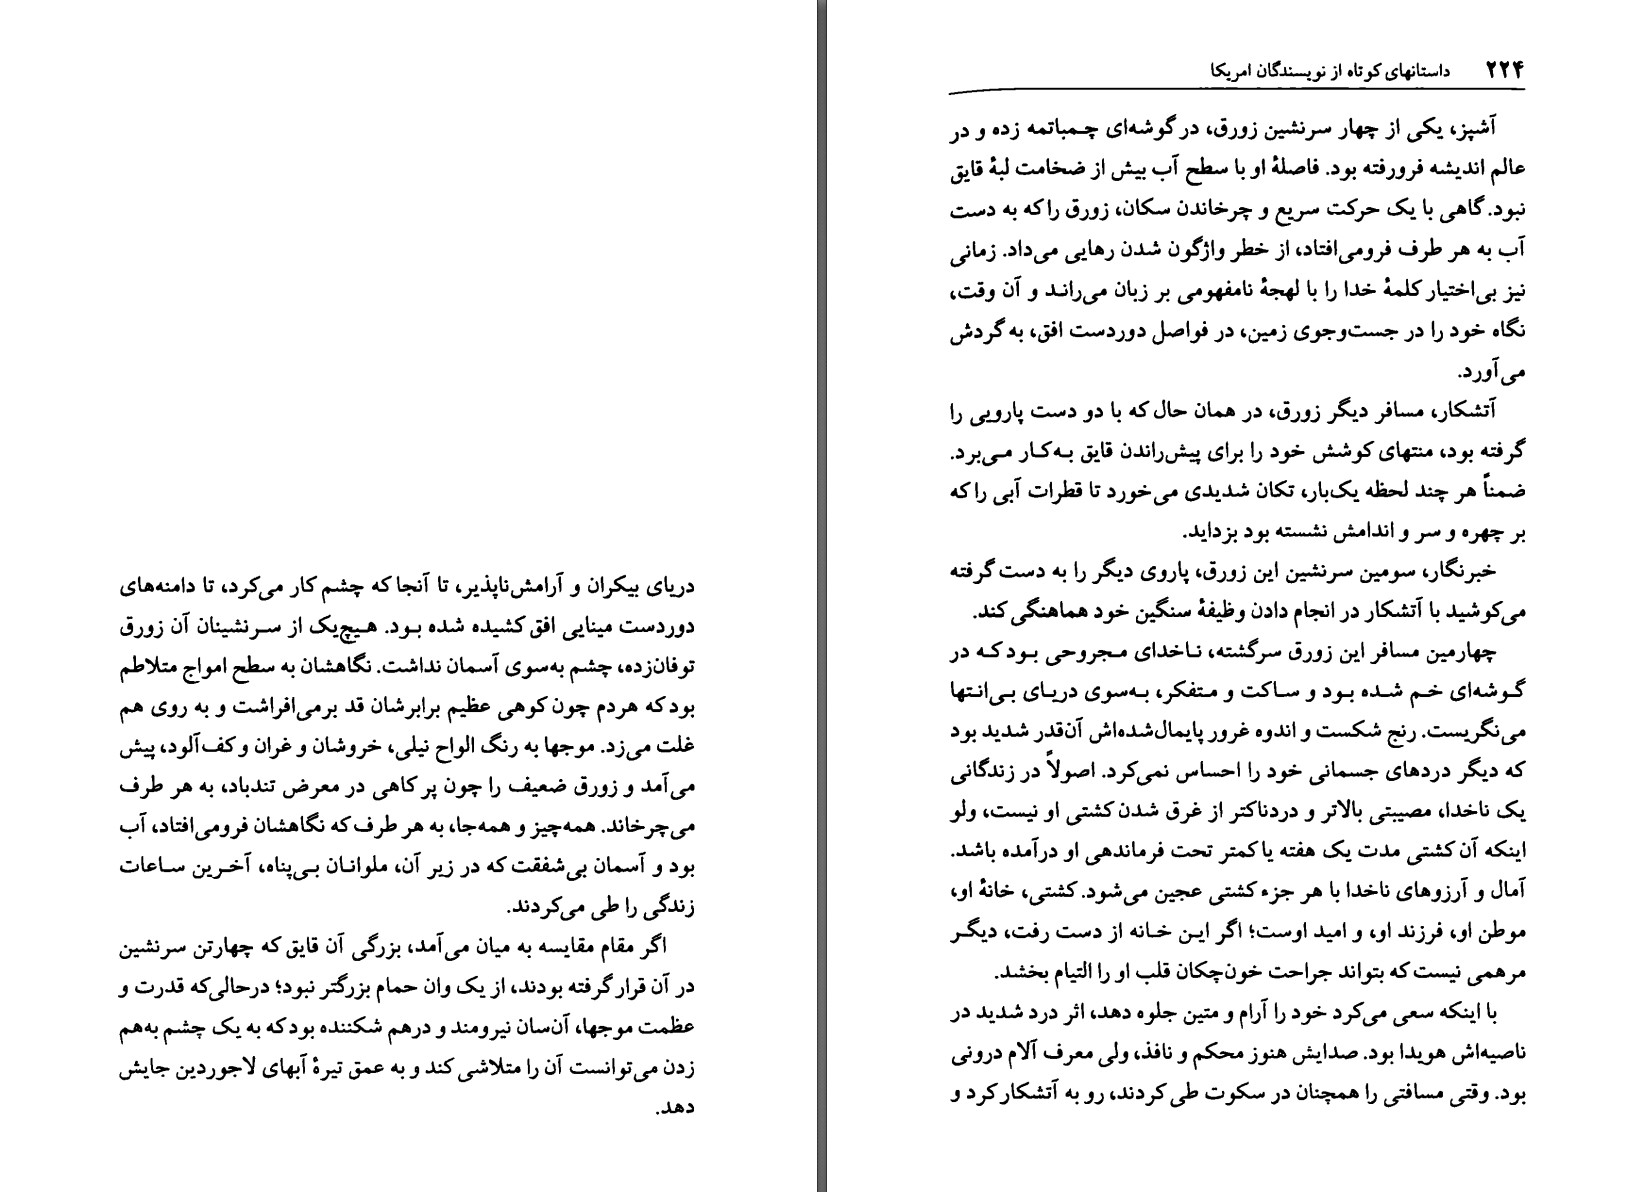 دریای بیکران و آرامش‌ناپذیر، تا آنجا که چشم کار می‌کرد، تا دامنه‌های
دوردست مینایی افق کشیده شده بود. هیچ‌یک از سرنشینان آن زورق
توفان‌زده، چشم به‌سوی آسمان نداشت. نگاهشان به سطح امواج متلاطم
بود که هردم چون کوهی عظیم برابرشان قد برمی‌افراشت و به روی هم
غلت می‌زد. موجها به رنگ الواح نیلی، خروشان و غران و کف‌آلود، پیش
می‌آمد و زورق ضعیف را چون پر کاهی در معرض تندباد، به هر طرف
می‌چرخاند. همه‌چیز و همه‌جا، به هر طرف که نگاهشان فرومی‌افتاد، آب
بود و آسمان بی‌شفقت که در زیر آن، ملوانان بی‌پناه، آخرین ساعات
زندگی را طی می‌کردند.
اگر مقام مقایسه به میان می‌آمد، بزرگی آن قایق که چهارتن سرنشین
در آن قرار گرفته بودند، از یک وان حمام بزرگتر نبود؛ درحالی‌که قدرت و
عظمت موجها، آن‌سان نیرومند و درهم شکننده بود که به یک چشم به‌هم
زدن می‌توانست آن را متلاشی کند و به عمق تیرهٔ آبهای لاجوردین جایش
دهد.
۲۲۴ داستانهای کوتاه از نویسندگان امریکا
آشپز، یکی از چهار سرنشین زورق، در گوشه‌ای چمباتمه زده و در
عالم اندیشه فرورفته بود. فاصلهٔ او با سطح آب بیش از ضخامت لبهٔ قایق
نبود. گاهی با یک حرکت سریع و چرخاندن سکان، زورق را که به دست
آب به هر طرف فرومی‌افتاد، از خطر واژگون شدن رهایی می‌داد. زمانی
نیز بی‌اختیار کلمهٔ خدا را با لهجهٔ نامفهومی بر زبان می‌راند و آن وقت،
نگاه خود را در جست‌وجوی زمین، در فواصل دوردست افق، به گردش
می‌آورد.
آتشکار، مسافر دیگر زورق، در همان حال که با دو دست پارویی را
گرفته بود، منتهای کوشش خود را برای پیش‌راندن قایق به‌کار می‌برد.
ضمناً هر چند لحظه یک‌بار، تکان شدیدی می‌خورد تا قطرات آبی را که
بر چهره و سر و اندامش نشسته بود بزداید.
خبرنگار، سومین سرنشین این زورق، پاروی دیگر را به دست گرفته
می‌کوشید با آتشکار در انجام دادن وظیفهٔ سنگین خود هماهنگی کند.
چهارمین مسافر این زورق سرگشته، ناخدای مجروحی بود که در
گوشه‌ای خم شده بود و ساکت و متفکر، به‌سوی دریای بی‌انتها
می‌نگریست. رنج شکست و اندوه غرور پایمال‌شده‌اش آن‌قدر شدید بود
که دیگر دردهای جسمانی خود را احساس نمی‌کرد. اصولاً در زندگانی
یک ناخدا، مصیبتی بالاتر و دردناکتر از غرق شدن کشتی او نیست، ولو
اینکه آن کشتی مدت یک هفته یا کمتر تحت فرماندهی او درآمده باشد.
آمال و آرزوهای ناخدا با هر جزء کشتی عجین می‌شود. کشتی، خانهٔ او،
موطن او، فرزند او، و امید اوست؛ اگر این خانه از دست رفت، دیگر
مرهمی نیست که بتواند جراحت خون‌چکان قلب او را التیام بخشد.
با اینکه سعی می‌کرد خود را آرام و متین جلوه دهد، اثر درد شدید در
ناصیه‌اش هویدا بود. صدایش هنوز محکم و نافذ، ولی معرف آلام درونی
بود. وقتی مسافتی را همچنان در سکوت طی کردند، رو به آتشکار کرد و